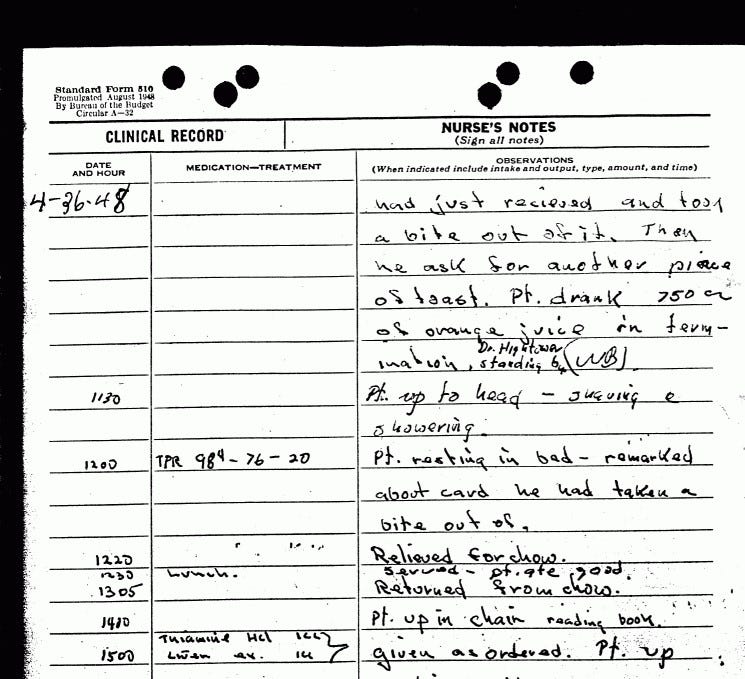 Standard Form 510
Promulgated August 1948
By Bureau of the Budget
Circular A—32
CLINICAL RECORD
NURSE'S NOTES
(Sign all notes)
DATE AND HOUR
MEDICATION—TREATMENT
OBSERVATIONS
(When indicated include intake and output, type, amount, and time)
4-26-48 had just recieved and took
a bite out of it. Then
he ask for another piece
of toast. Pt. drank 750 cc
of orange juice in term-
ination, Dr. Hightower standing by (WB).
1130 Pt. up to head - shaving &
showering.
1200 TPR 98⁴-76-20 Pt. resting in bed - remarked
about card he had taken a
bite out of.
1220 Relieved for chow.
1230 Lunch. Served - pt. ate good.
1305 Returned from chow.
1410 Pt. up in chair reading book.
Thiamine Hcl 1cc
1500 Liver ex. 1cc given as ordered. Pt. up